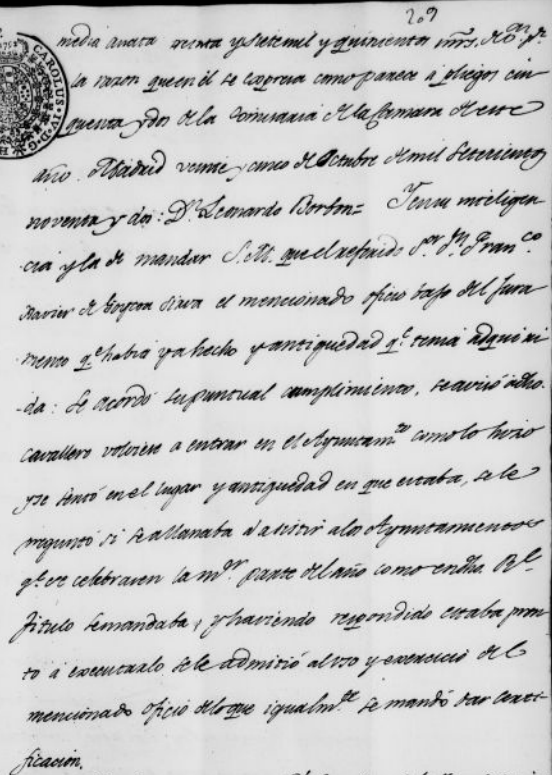 209
CAROLUS IV D G
media anata treinta y siete mil y quinientos mrs. de on pr
la razon que en él se expresa como parece á pliegos cin
quenta y dos de la Comisaria de la Camara de este
año. Madrid veinte y cinco de Octubre de mil setecientos
noventa y dos: Dn. Leonardo Borbon= Y en su inteligen
cia y la de mandar S. M. que el referido Sor. Dn. Franco.
Xavier de Goycoa sirva el mencionado oficio bajo del jura
mento qe. habia ya hecho y antiguedad qe. tenia adquiri
-da: se acordó su puntual cumplimiento, se avisó á dho.
cavallero volviese a entrar en el Ayuntamto. como lo hizo
y se sentó en el lugar y antiguedad en que estaba, se le
preguntó si se allanaba á asistir a los Ayuntamientos
qe. se celebrasen la mr. parte del año como en dho. Rl.
Titulo se mandaba, y haviendo respondido estaba pron
to á executarlo se le admitió al uso y exercicio del
mencionado oficio de lo que igualmte. se mandó dar certi
ficacion.